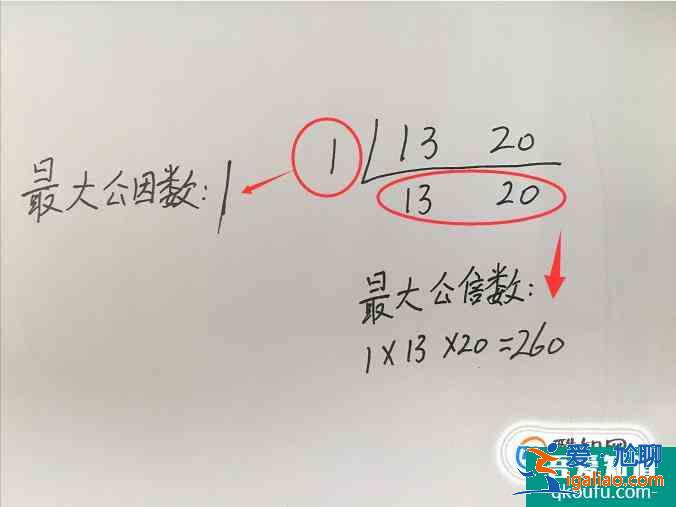 1 13 20
最大公因数:1
13 20
最大公倍数:
1×13×20=260
爱尬聊
igaliao.com
qkoufu.com